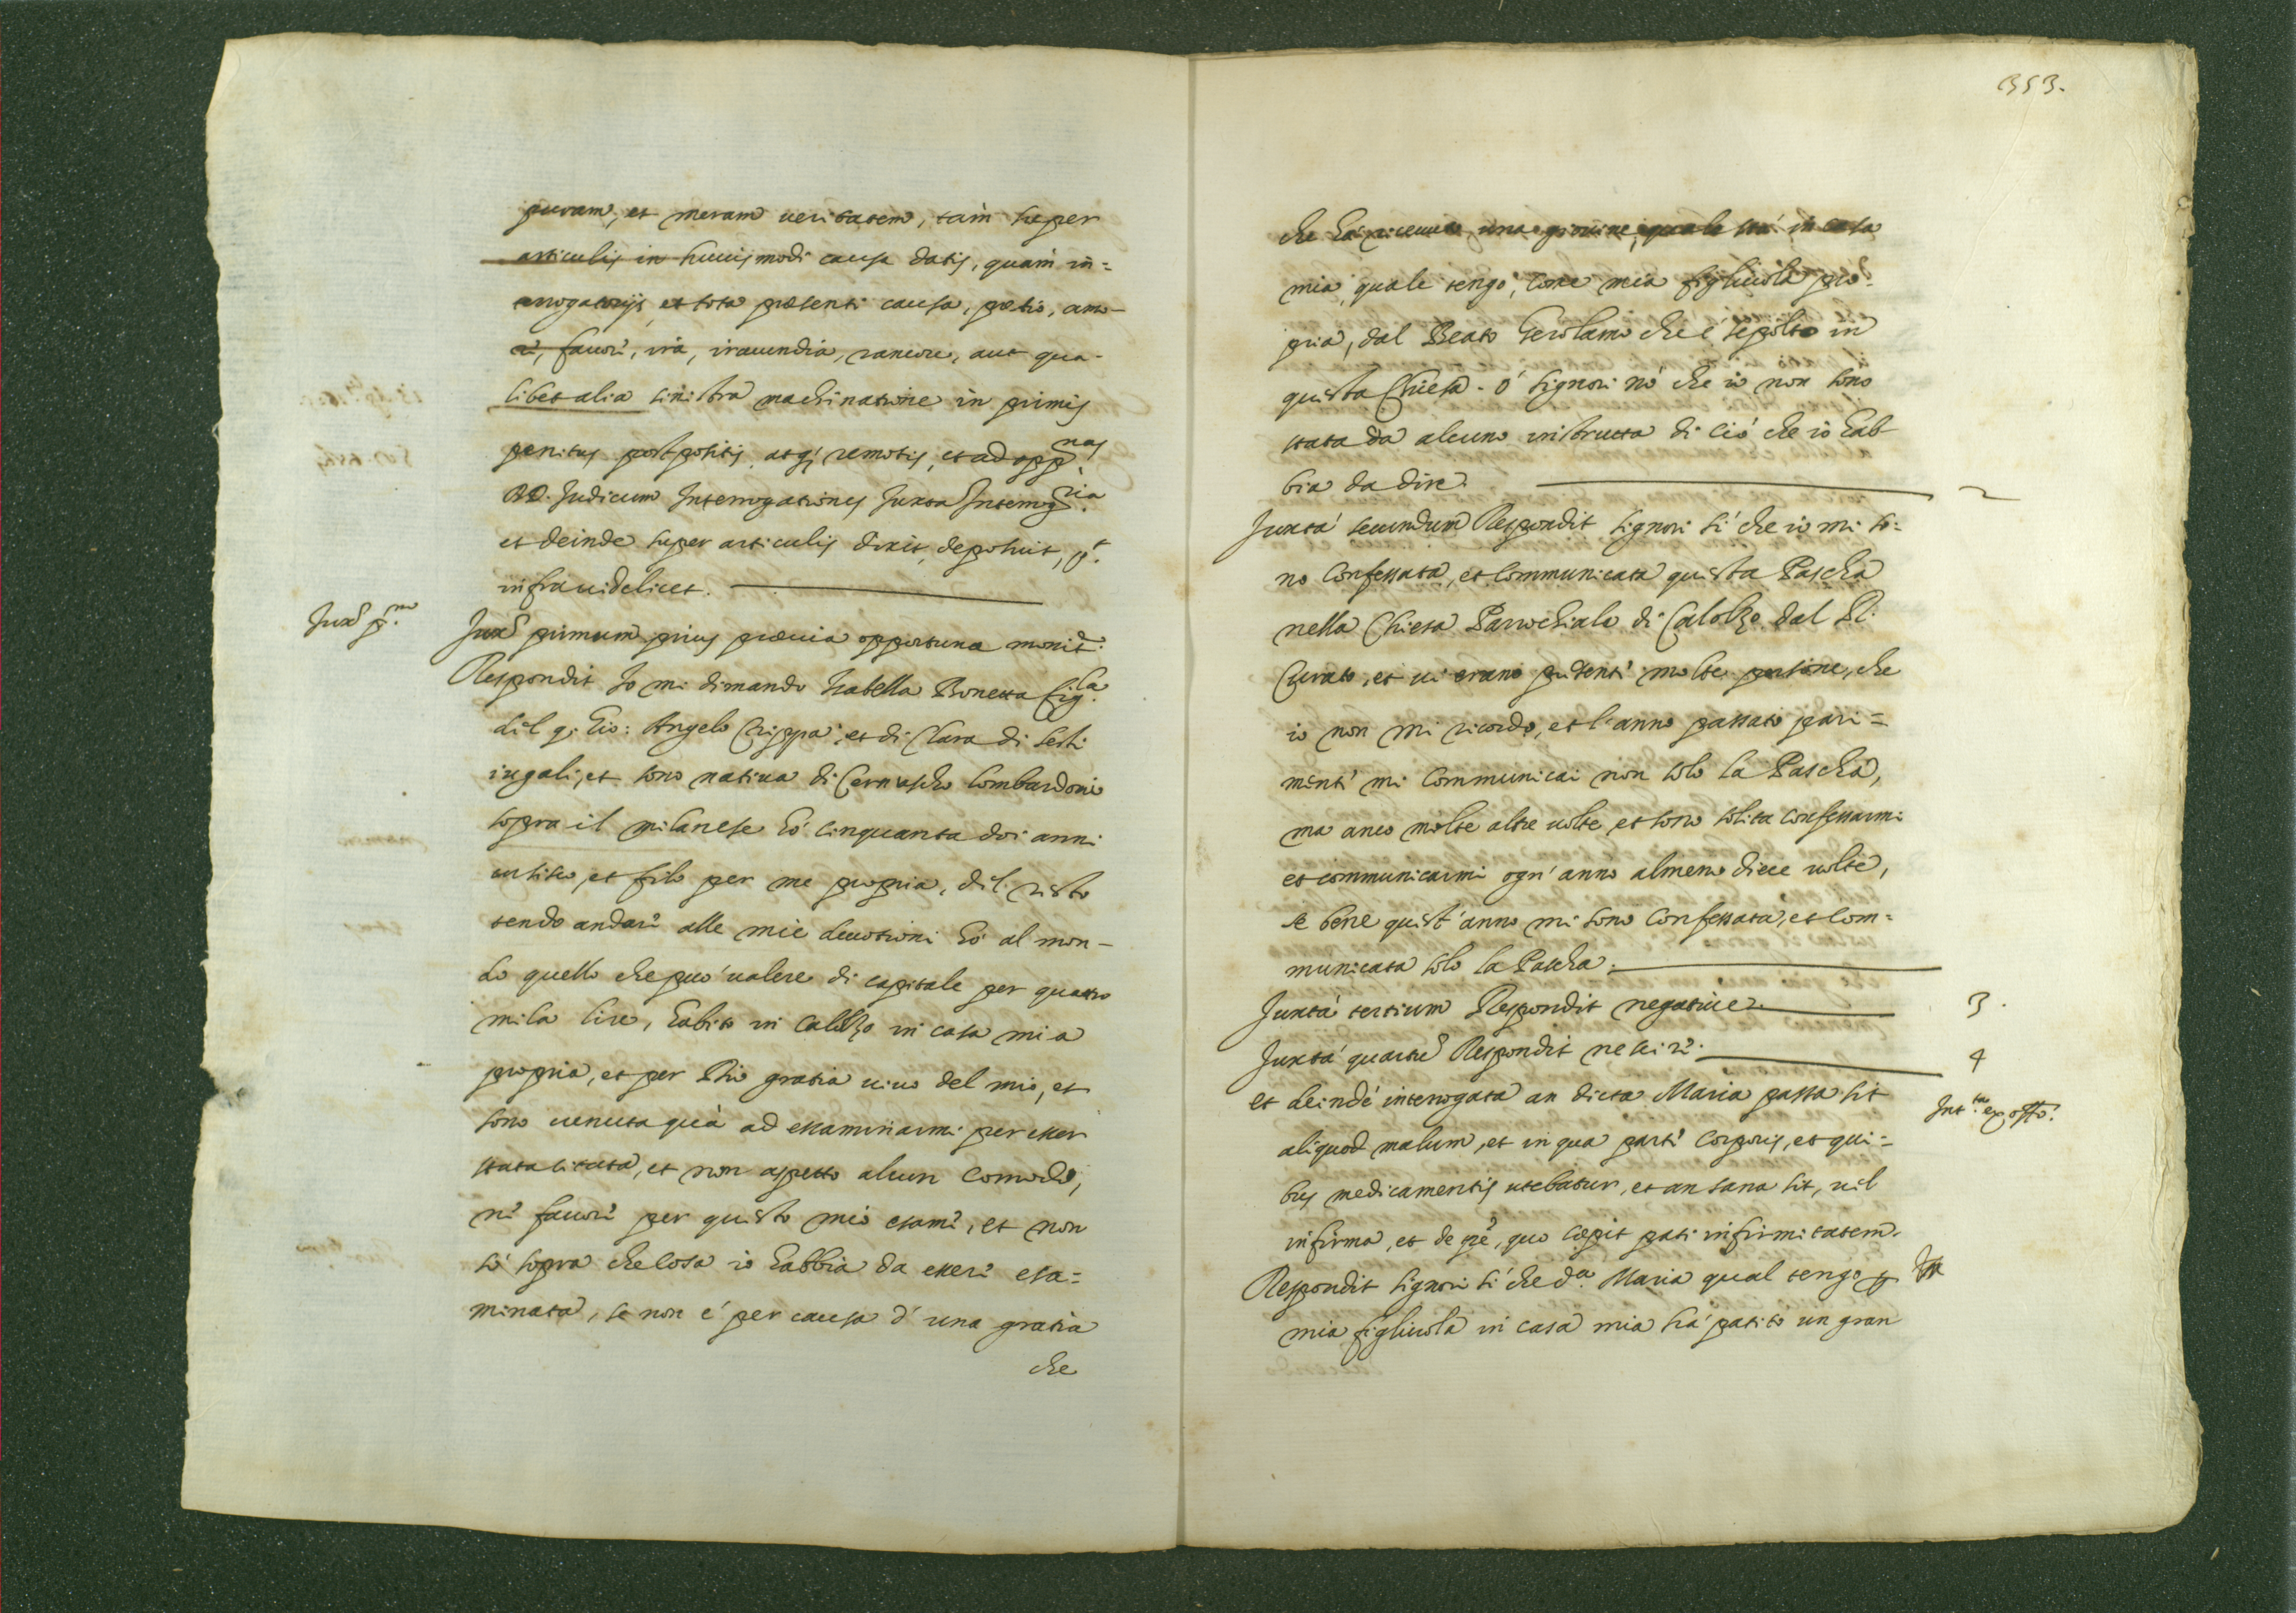 puram, et meram ueritatem, tam super
articulis in huiusmodi causa datis, quam in=
terrogatorijs, et tota præsenti causa, prætio, amo-
re, fauore, ira, iracundia, rancore, aut qua-
libet alia sinistra machinatione in primis
penitus postpositis, atq; remotis, et ad opp.nas
RR.D. Judicum Interrogationes Juxta Interrog.ria
et deinde super articulis dixit, deposuit, ut
infra uidelicet.
Jux.a p.m
Juxa primum prius præuia opportuna monit.e
Respondit Io mi dimando Isabella Bonetta fig.la
del q. Gio: Angelo Crippa, et di Clara di Sesti
iugali, et sono natiua di Cernuscho Lombardone
sopra il milanese hò cinquanta doi anni
et filo per me propria, del resto
tendo andare alle mie deuotioni hò al mon-
do quello che può ualere di capitale per quatro
mila lire, habito in Calolzo in casa mia
propria, et per Dio gratia uiuo del mio, et
sono uenuta quà ad essaminarmi per esser
stata citata, et non aspetto alcun comodo,
ne fauore per questo mio esame, et non
sò sopra che cosa io habbia da essere esa=
minata, se non è per causa d'una gratia
che
353.
che hà riceuuto una giouine, quale stà in casa
mia, quale tengo, come mia figliuola pro=
pria, dal Beato Gerolamo che è sepolto in
questa Chiesa. ò signori nò che io non sono
stata da alcuno instrutta di ciò che io hab-
bia da dire.
2
Juxtà secundum Respondit signori sì che io mi so=
no confessata, et communicata questa Pascha
nella Chiesa Parrochiale di Calolzo dal R.
Curato, et ui erano presenti molte persone, che
io non mi ricordo, et l'anno passato pari=
menti mi communicai non solo la Pascha,
ma anco molte altre uolte, et sono solita confessarmi
et communicarmi ogn'anno almeno diece uolte,
se bene quest'anno mi sono confessata, et com=
municata solo la Pascha.
Juxtà tertium Respondit negatiue.
3.
Juxtà quartum Respondit nescire.
4
et deindè interrogata an dicta Maria passa sit
Int.ta ex off.o
aliquod malum, et in qua parte corporis, et qui=
bus medicamentis utebatur, et an sana sit, uel
infirma, et de tpe, quo cæpit pati infirmitatem.
Respondit signori sì che d.a Maria qual tengo p
mia figliuola in casa mia hà patito un gran